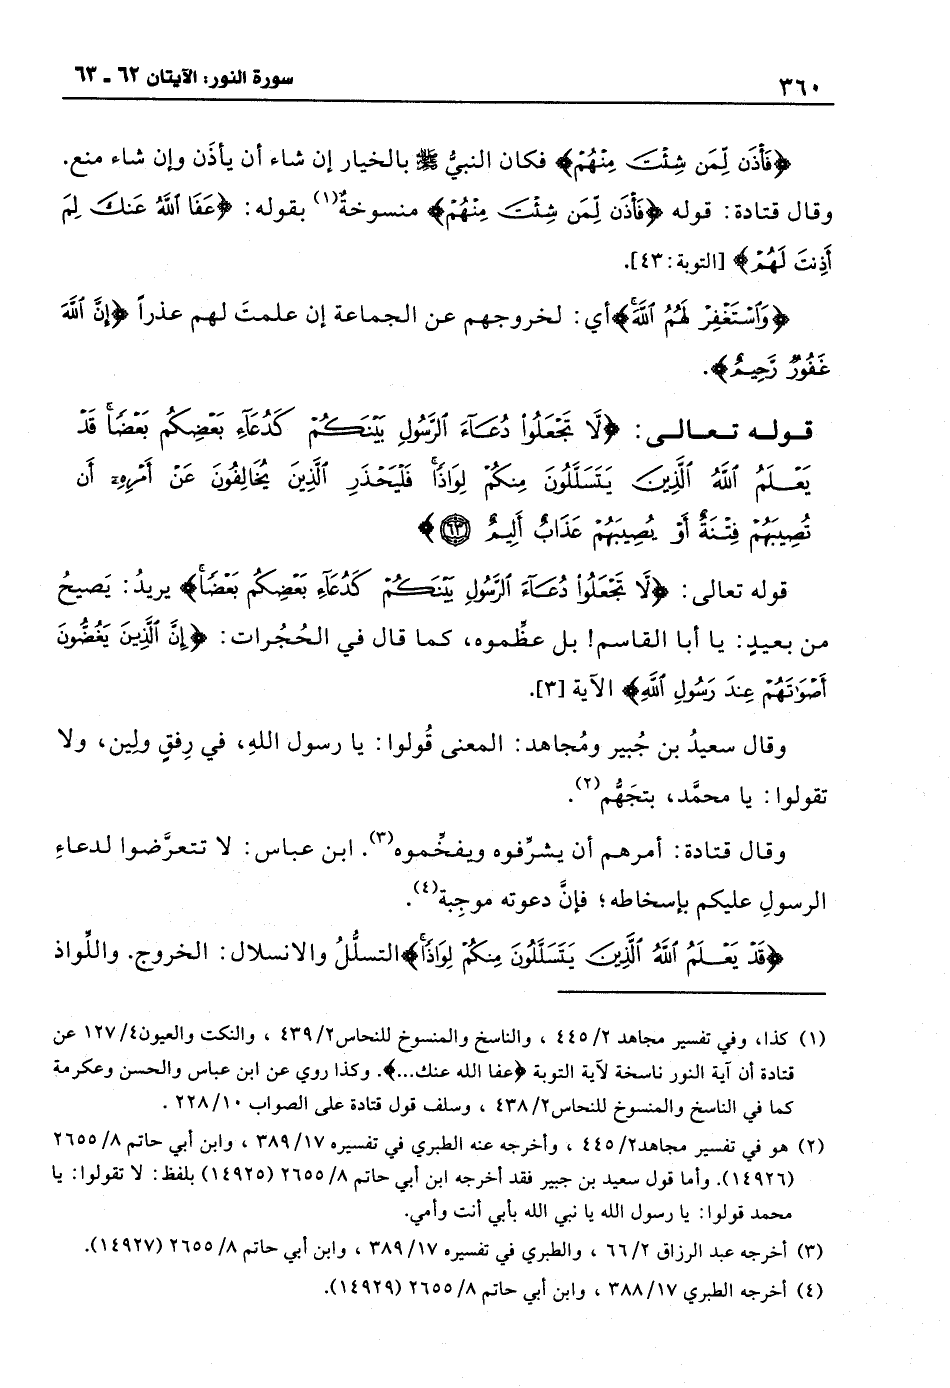 ٣٦٠
سورة النور: الآيتان ٦٢ - ٦٣
﴿فَأْذَن لِّمَن شِئْتَ مِنْهُمْ﴾ فكان النبيُّ ﷺ بالخيار إن شاء أن يأذَن وإن شاء منع.
وقال قتادة: قوله ﴿فَأْذَن لِّمَن شِئْتَ مِنْهُمْ﴾ منسوخةٌ(١) بقوله: ﴿عَفَا ٱللَّهُ عَنكَ لِمَ
أَذِنتَ لَهُمْ﴾ [التوبة: ٤٣].
﴿وَٱسْتَغْفِرْ لَهُمُ ٱللَّهَۚ﴾ أي: لخروجهم عن الجماعة إن علمتَ لهم عذراً ﴿إِنَّ ٱللَّهَ
غَفُورٌ رَّحِيمٌ﴾.
قوله تعالى: ﴿لَّا تَجْعَلُوا۟ دُعَآءَ ٱلرَّسُولِ بَيْنَكُمْ كَدُعَآءِ بَعْضِكُم بَعْضًاۚ قَدْ
يَعْلَمُ ٱللَّهُ ٱلَّذِينَ يَتَسَلَّلُونَ مِنكُمْ لِوَاذًاۚ فَلْيَحْذَرِ ٱلَّذِينَ يُخَالِفُونَ عَنْ أَمْرِهِۦٓ أَن
تُصِيبَهُمْ فِتْنَةٌ أَوْ يُصِيبَهُمْ عَذَابٌ أَلِيمٌ ﴿٦٣﴾ ﴾
قوله تعالى: ﴿لَّا تَجْعَلُوا۟ دُعَآءَ ٱلرَّسُولِ بَيْنَكُمْ كَدُعَآءِ بَعْضِكُم بَعْضًاۚ﴾ يريدُ: يَصيحُ
من بعيدٍ: يا أبا القاسم! بل عظِّموه، كما قال في الحُجُرات: ﴿إِنَّ ٱلَّذِينَ يَغُضُّونَ
أَصْوَٰتَهُمْ عِندَ رَسُولِ ٱللَّهِ﴾ الآية [٣].
وقال سعيدُ بن جُبير ومُجاهد: المعنى قُولوا: يا رسول اللهِ، في رِفقٍ ولِين، ولا
تقولوا: يا محمَّد، بتجَهُّم(٢).
وقال قتادة: أمرهم أن يشرِّفوه ويفخِّموه(٣). ابن عباس: لا تتعرَّضوا لدعاءِ
الرسولِ عليكم بإسخاطه؛ فإنَّ دعوته موجِبة(٤).
﴿قَدْ يَعْلَمُ ٱللَّهُ ٱلَّذِينَ يَتَسَلَّلُونَ مِنكُمْ لِوَاذًاۚ﴾ التسلُّلُ والانسلال: الخروج. واللِّواذ
(١) كذا، وفي تفسير مجاهد ٤٤٥/٢ ، والناسخ والمنسوخ للنحاس ٤٣٩/٢ ، والنكت والعيون ١٢٧/٤ عن
قتادة أن آية النور ناسخة لآية التوبة ﴿عفا الله عنك...﴾. وكذا روي عن ابن عباس والحسن وعكرمة
كما في الناسخ والمنسوخ للنحاس ٤٣٨/٢ ، وسلف قول قتادة على الصواب ٢٢٨/١٠ .
(٢) هو في تفسير مجاهد ٤٤٥/٢ ، وأخرجه عنه الطبري في تفسيره ٣٨٩/١٧ ، وابن أبي حاتم ٢٦٥٥/٨
(١٤٩٢٦). وأما قول سعيد بن جبير فقد أخرجه ابن أبي حاتم ٢٦٥٥/٨ (١٤٩٢٥) بلفظ: لا تقولوا: يا
محمد قولوا: يا رسول الله يا نبي الله بأبي أنت وأمي.
(٣) أخرجه عبد الرزاق ٦٦/٢ ، والطبري في تفسيره ٣٨٩/١٧ ، وابن أبي حاتم ٢٦٥٥/٨ (١٤٩٢٧).
(٤) أخرجه الطبري ٣٨٨/١٧ ، وابن أبي حاتم ٢٦٥٥/٨ (١٤٩٢٩).